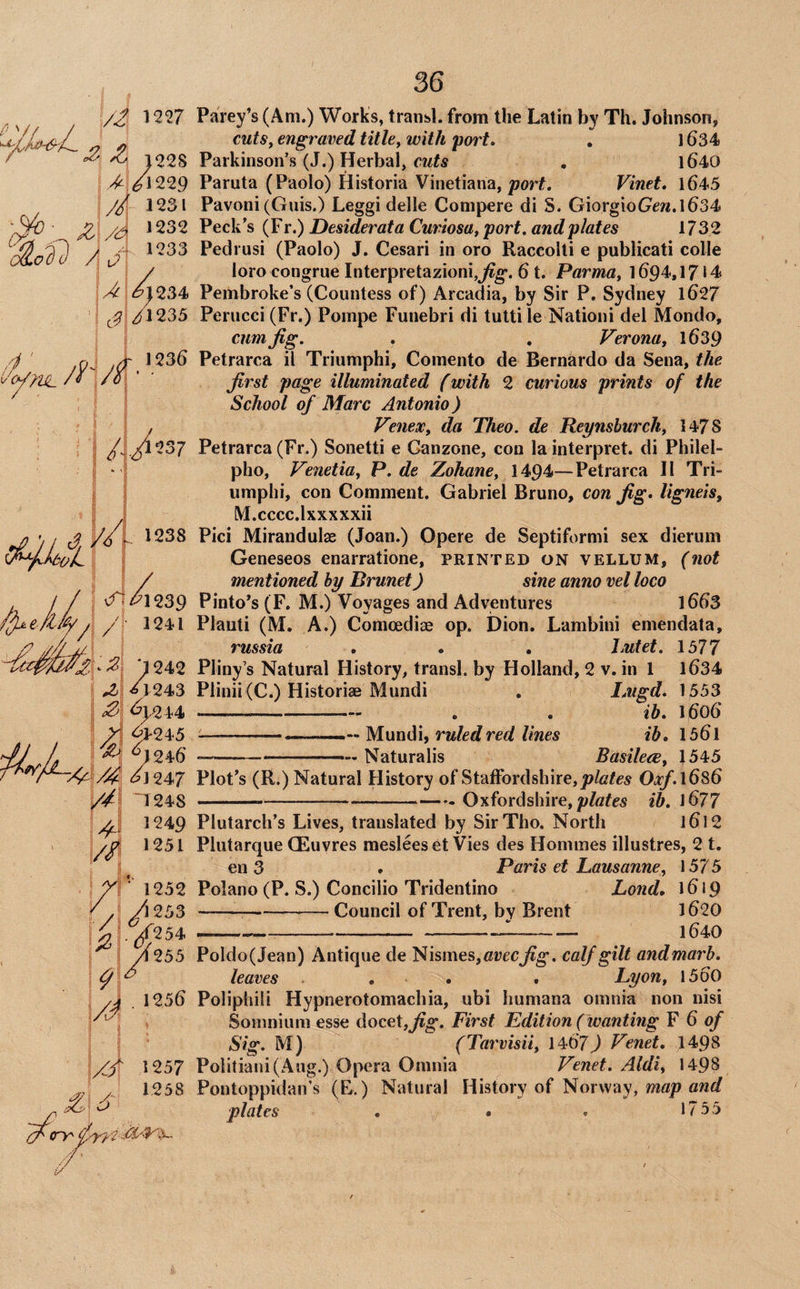 36
1227 Parey's (Am.) Works, transl. from the Latin by Th. Johnson,
cuts, engraved title, with port. . 1634
1228 Parkinson's (J.) Herbal, cuts . 1640
1229 Paruta (Paolo) Historia Vinetiana, port. Vinet. 1645
1231 Pavoni (Guis.) Leggi delle Compere di S. Giorgio Gen. 1634
1232 Peck's (Fr.) Desiderata Curiosa, port. and plates 1732
1233 Pedrusi (Paolo) J. Cesari in oro Raccolti e publicati colle
loro congrue Interpretazioni, fig. 6 t. Parma, 1694,1714
1234 Pembroke's (Countess of) Arcadia, by Sir P. Sydney 1627
1235 Perucci (Fr.) Pompe Funebri di tutti le Nationi del Mondo,
cum fig. . . Verona, 1639
1236 Petrarca il Triumphi, Comento de Bernardo da Sena, the
first page illuminated (with 2 curious prints of the
School of Marc Antonio)
Venex, da Theo. de Reynsburch, 1478
1237 Petrarca (Fr.) Sonetti e Canzone, con la interpret. di Philel-
pho, Venetia, P. de Zohane, 1494—Petrarca Il Tri-
umphi, con Comment. Gabriel Bruno, con fig. ligneis,
M.cccc.lxxxxxii
1238 Pici Mirandulæ (Joan.) Opere de Septiformi sex dierum
Geneseos enarratione, PRINTED ON VELLUM, (not
mentioned by Brunet) sine anno vel loco
1239 Pinto's (F. M.) Voyages and Adventures 1663
1241 Plauti (M. A.) Comœdiæ op. Dion. Lambini emendata,
russia . . . Lutet. 1577
1242 Pliny's Natural History, transl. by Holland, 2 v. in 1 1634
1243 Plinii (C.) Historiæ Mundi . Lugd. 1553
1244 ———————— . . ib. 1606
1245 ———————— Mundi, ruled red lines ib. 1561
1246 ———————— Naturalis Basileæ, 1545
1247 Plot's (R.) Natural History of Staffordshire, plates Oxf. 1686
1248 ———————————— Oxfordshire, plates ib. 1677
1249 Plutarch's Lives, translated by Sir Tho. North 1612
1251 Plutarque Œuvres meslées et Vies des Hommes illustres, 2 t.
en 3 . Paris et Lausanne, 1575
1252 Polano (P. S.) Concilio Tridentino Lond. 1619
1253 ———————— Council of Trent, by Brent 1620
1254 ———————— ———————— 1640
1255 Poldo (Jean) Antique de Nismes, avec fig. calf gilt and marb.
leaves . . . Lyon, 1560
1256 Poliphili Hypnerotomachia, ubi humana omnia non nisi
Somnium esse docet, fig. First Edition (wanting F 6 of
Sig. M) (Tarvisii, 1467) Venet. 1498
1257 Politiani (Aug.) Opera Omnia Venet. Aldi, 1498
1258 Pontoppidan's (E.) Natural History of Norway, map and
plates . . . 1755